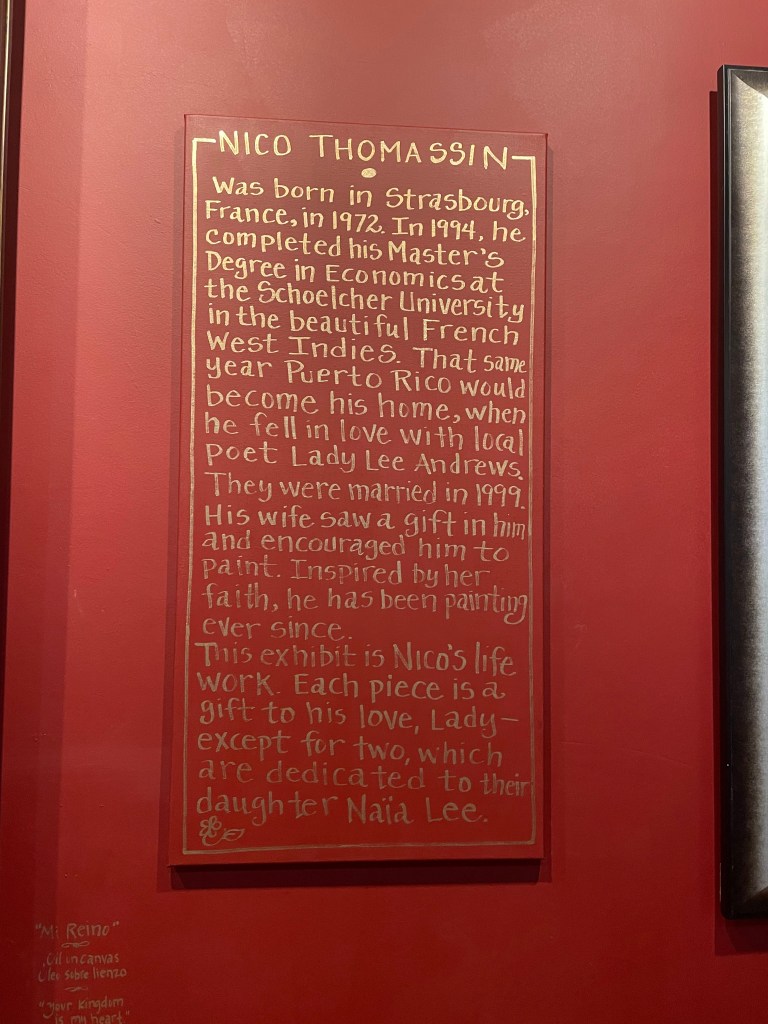 NICO THOMASSIN
Was born in Strasbourg,
France, in 1972. In 1994, he
completed his Master's
Degree in Economics at
the Schoelcher University
in the beautiful French
West Indies. That same
year Puerto Rico would
become his home, when
he fell in love with local
poet Lady Lee Andrews.
They were married in 1999.
His wife saw a gift in him
and encouraged him to
paint. Inspired by her
faith, he has been painting
ever since.
This exhibit is Nico's life
work. Each piece is a
gift to his love, Lady—
except for two, which
are dedicated to their
daughter Naïa Lee.
"Mi Reino"
Oil on canvas
Óleo sobre lienzo
"Your kingdom
is my heart"